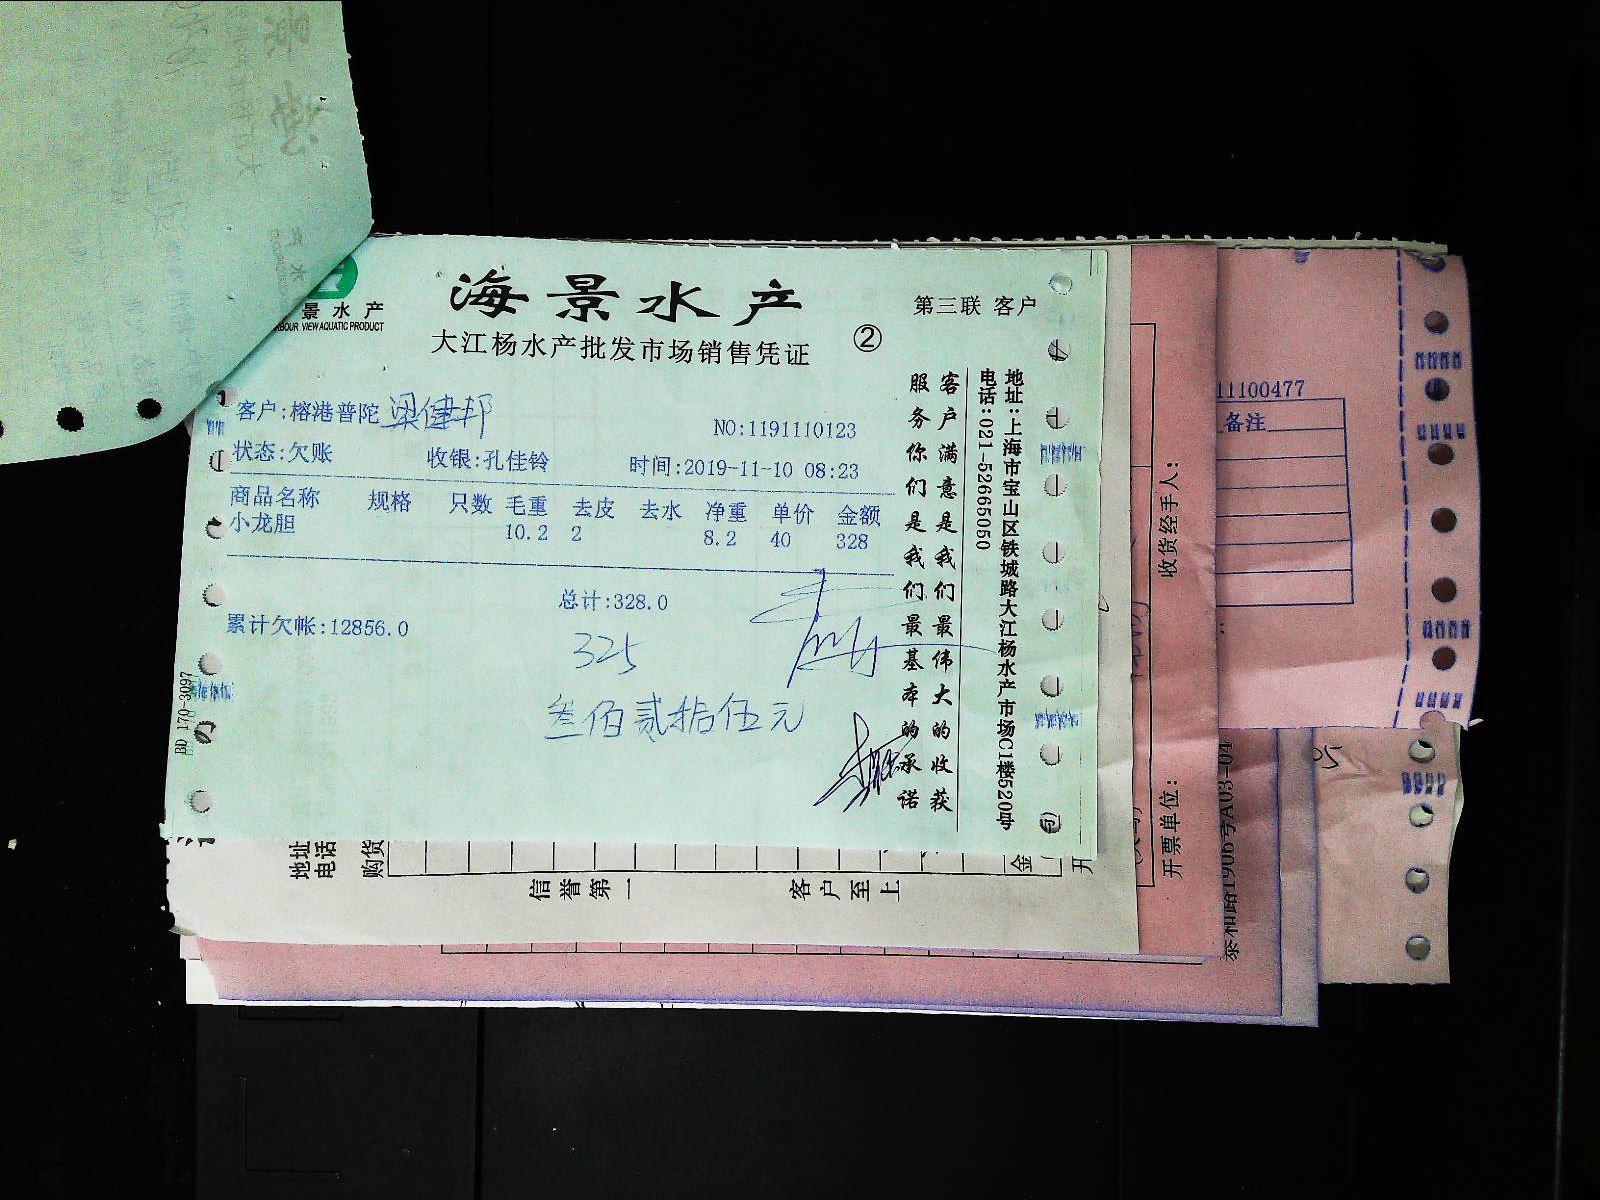 景水产
BOUR VIEW AQUATIC PRODUCT
海景水产
大江杨水产批发市场销售凭证
②
第三联 客户
客户:榕港普陀 梁健邦
NO:1191110123
状态:欠账 收银:孔佳铃 时间:2019-11-10 08:23
商品名称 规格 只数 毛重 去皮 去水 净重 单价 金额
小龙胆 10.2 2 8.2 40 328
总计:328.0
累计欠帐:12856.0
325
叁佰贰拾伍元
客户满意是我们最伟大的收获
服务你们是我们最基本的承诺
地址:上海市宝山区铁城路大江杨水产市场C1楼520号
电话:021-52665050
BD 170-3097
地址
电话
购货
信誉第一
客户至上
金
开
收货经手人:
开票单位:
11100477
备注
泰和路1906号A03-04
05